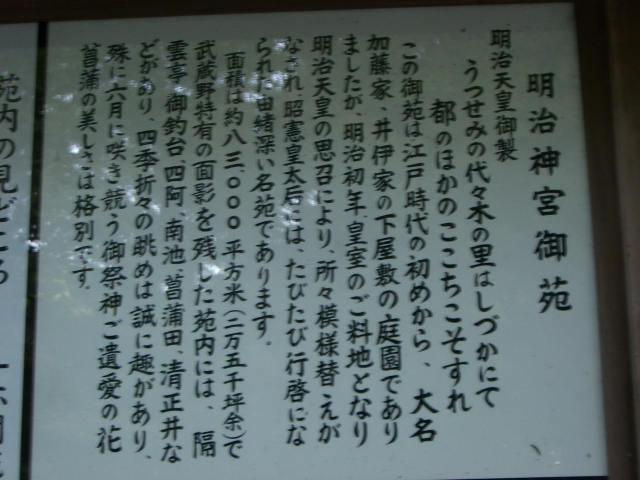 明治神宮御苑
明治天皇御製
うつせみの代々木の里はしづかにて
都のほかのここちこそすれ
この御苑は江戸時代の初めから、大名
加藤家、井伊家の下屋敷の庭園であり
ましたが、明治初年皇室のご料地となり
明治天皇の思召により、所々模様替えが
なされ昭憲皇太后には、たびたび行啓にな
られた由緒深い名苑であります。
面積は約八三、〇〇〇平方米(二万五千坪余)で
武蔵野特有の面影を残した苑内には、隔
雲亭、御釣台、四阿、南池、菖蒲田、清正井な
どがあり、四季折々の眺めは誠に趣があり、
殊に六月に咲き競う御祭神ご遺愛の花
菖蒲の美しさは格別です。
苑内の見どころ